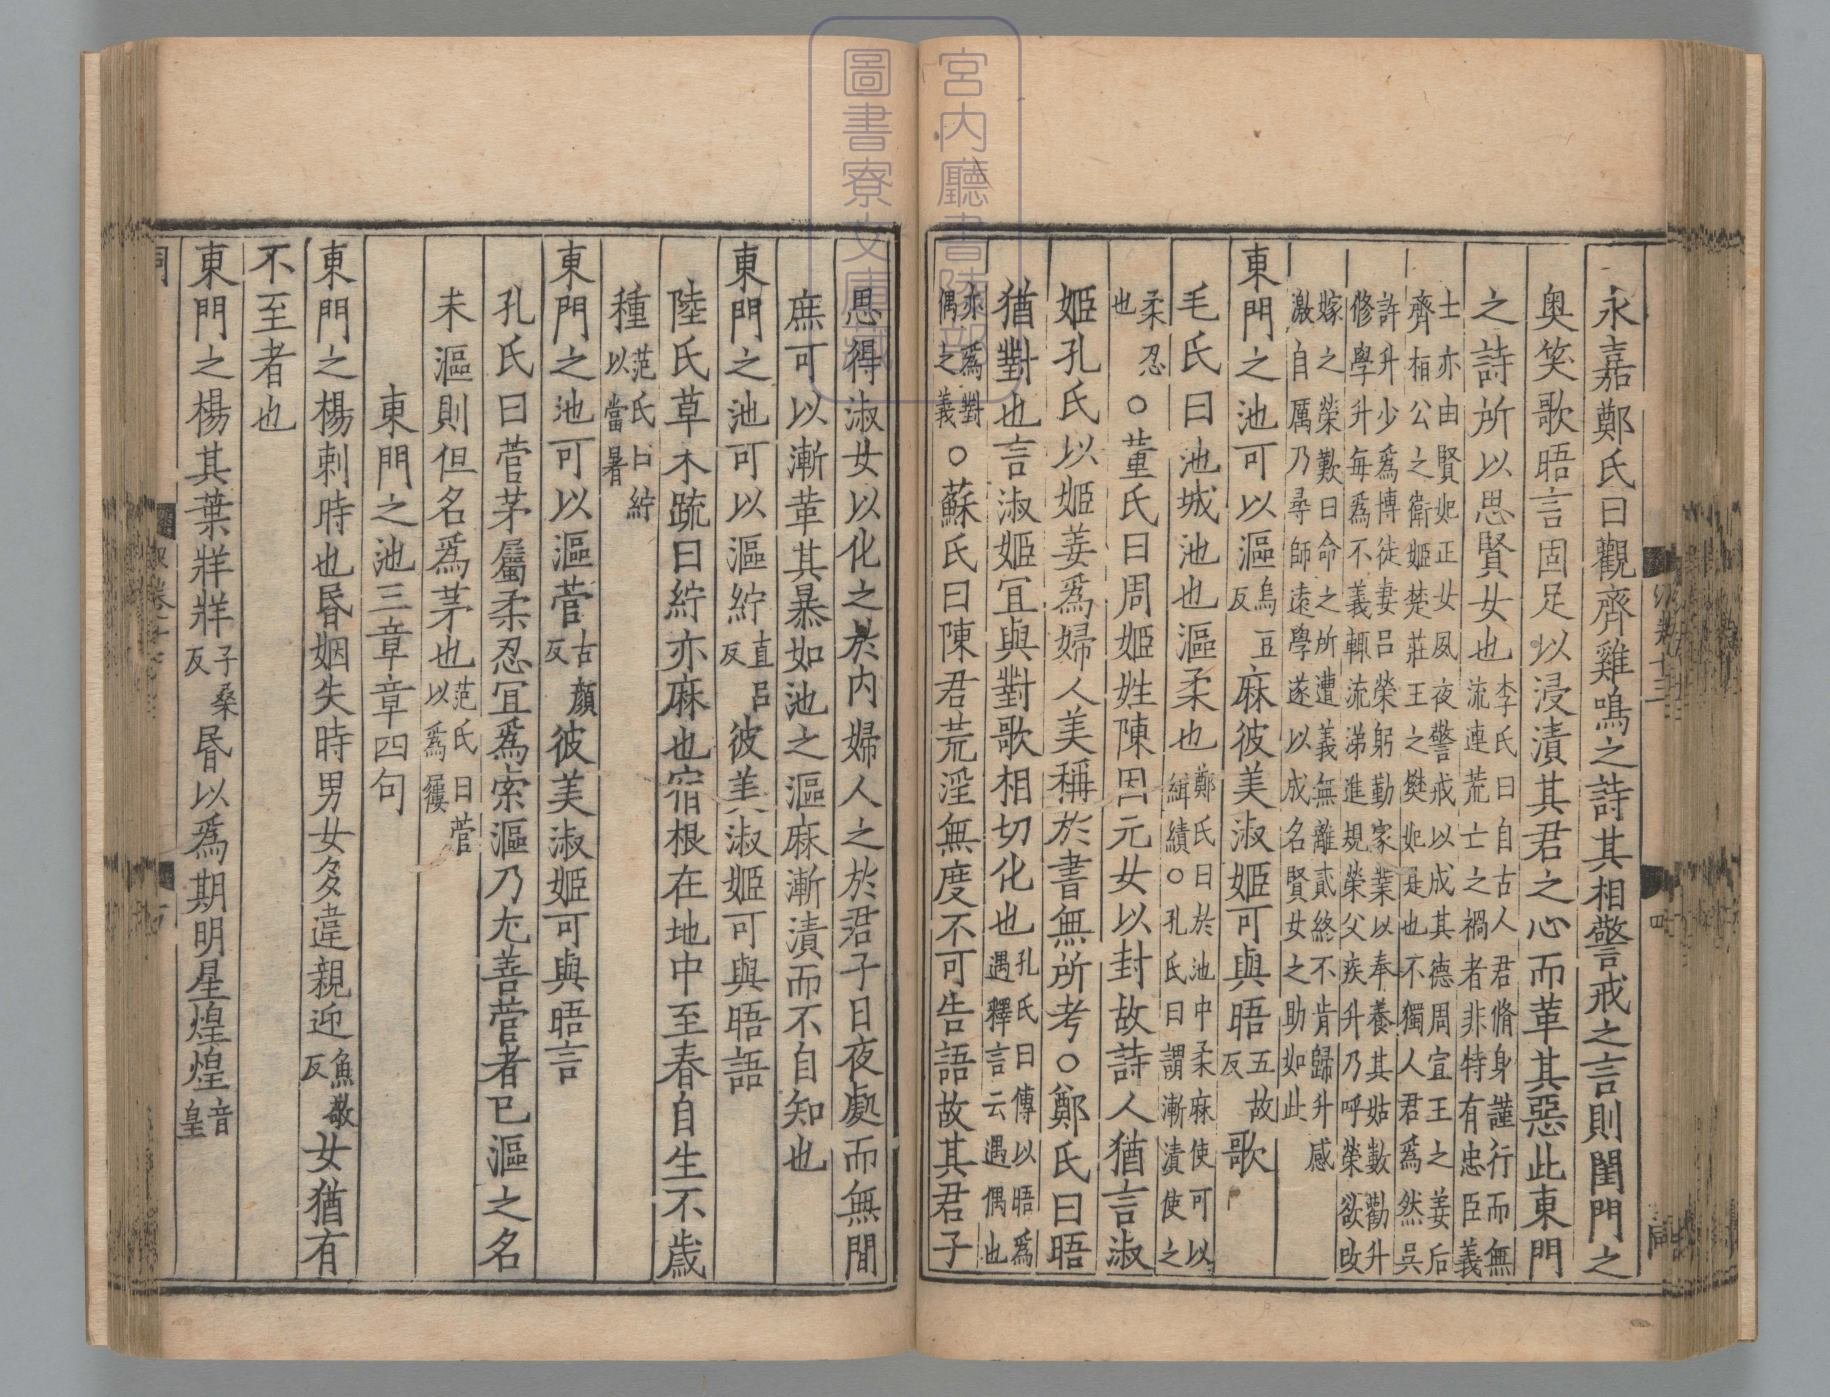 永嘉鄭氏曰觀齊雞鳴之詩其相警戒之言則閨門之
奥笑歌晤言固足以浸漬其君之心而革其惡此東門
之詩所以思賢女也李氏曰自古人君脩身謹行而無流連荒亡之禍者非特有忠臣義
士亦由賢妃正女夙夜警戒以成其德周宣王之姜后齊桓公之衛姬楚莊王之樊妃是也不獨人君爲然吳
許升少爲博徒妻吕榮躬勤家業以奉養其姑數勸升修學升每爲不義輒流涕進規榮父疾升乃呼榮欲改
嫁之榮歎曰命之所遭義無離貳終不肯歸升感激自厲乃尋師遠學遂以成名賢女之助如此
東門之池可以漚烏豆反麻彼美淑姬可與晤五故反歌
毛氏曰池城池也漚柔也鄭氏曰於池中柔麻使可以緝績○孔氏曰謂漸漬使之
柔忍也○董氏曰周姬姓陳因元女以封故詩人猶言淑
姬孔氏以姬姜爲婦人美稱於書無所考○鄭氏曰晤
猶對也言淑姬宜與對歌相切化也孔氏曰傳以晤爲遇釋言云遇偶也
亦爲對偶之義○蘇氏曰陳君荒淫無度不可告語故其君子
思得淑女以化之於内婦人之於君子日夜處而無間
庶可以漸革其暴如池之漚麻漸漬而不自知也
東門之池可以漚紵直吕反彼美淑姬可與晤語
陸氏草木疏曰紵亦麻也宿根在地中至春自生不歲
種范氏曰紵以當暑
東門之池可以漚菅古顔反彼美淑姬可與晤言
孔氏曰菅茅屬柔忍宜爲索漚乃尤善菅者已漚之名
未漚則但名爲茅也范氏曰菅以爲屨
東門之池三章章四句
東門之楊刺時也昬姻失時男女多違親迎魚敬反女猶有
不至者也
東門之楊其葉牂牂子桑反昬以爲期明星煌煌音皇
宮内廳書陵部
圖書寮文庫